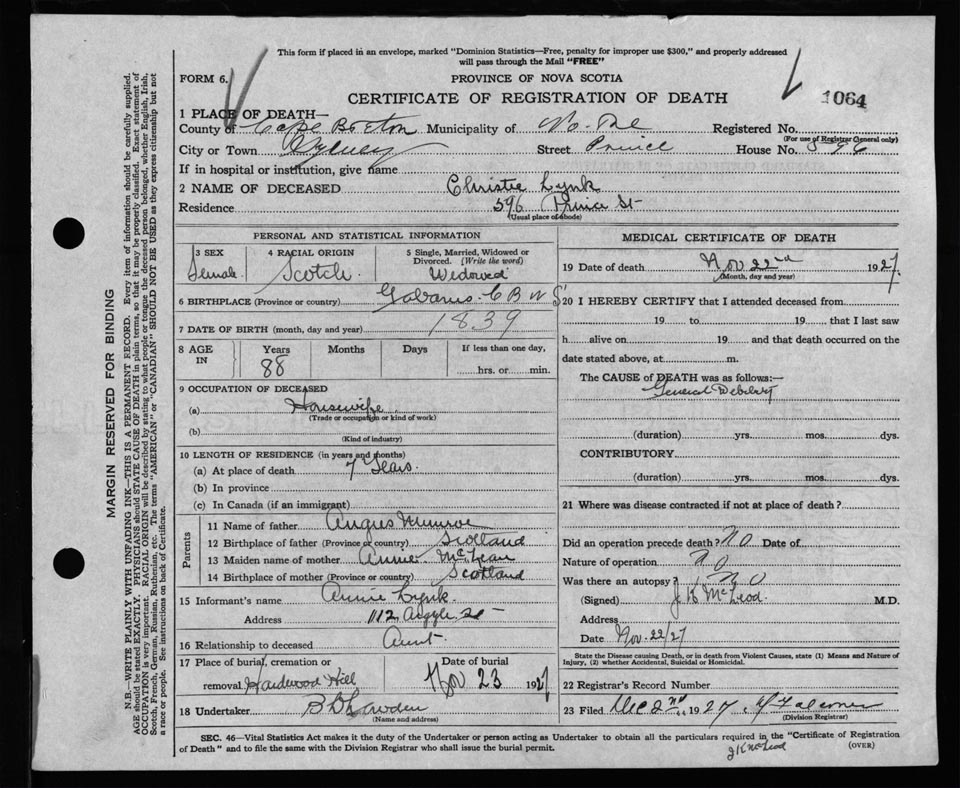 This form if placed in an envelope, marked "Dominion Statistics—Free, penalty for improper use $300," and properly addressed
will pass through the Mail "FREE"
FORM 6.
PROVINCE OF NOVA SCOTIA
CERTIFICATE OF REGISTRATION OF DEATH
1064
1 PLACE OF DEATH—
County of Cape Breton Municipality of No. One Registered No.
(For use of Registrar General only)
City or Town Sydney Street Prince House No.
If in hospital or institution, give name
2 NAME OF DECEASED Christie Lynk
Residence 596 Prince St
(Usual place of abode)
PERSONAL AND STATISTICAL INFORMATION
3 SEX Female
4 RACIAL ORIGIN Scotch
5 Single, Married, Widowed or Divorced. (Write the word) Widowed
6 BIRTHPLACE (Province or country) Gabarus C B N S
7 DATE OF BIRTH (month, day and year) 1839
8 AGE IN Years 88 Months Days If less than one day, hrs. or min.
9 OCCUPATION OF DECEASED
(a) Housewife
(Trade or occupation or kind of work)
(b)
(Kind of industry)
10 LENGTH OF RESIDENCE (in years and months)
(a) At place of death 7 Years.
(b) In province
(c) In Canada (if an immigrant)
Parents
11 Name of father Angus Munroe
12 Birthplace of father (Province or country) Scotland
13 Maiden name of mother Annie McLean
14 Birthplace of mother (Province or country) Scotland
15 Informant's name Annie Lynk
Address 112 Argyle St
16 Relationship to deceased Aunt.
17 Place of burial, cremation or
removal Hardwood Hill
Date of burial
Nov 23 1927
18 Undertaker
(Name and address)
MEDICAL CERTIFICATE OF DEATH
19 Date of death Nov 22nd 1927.
(Month, day and year)
20 I HEREBY CERTIFY that I attended deceased from
19 to 19 that I last saw
h alive on 19 and that death occurred on the
date stated above, at m.
The CAUSE of DEATH was as follows:—
General Debility
(duration) yrs. mos. dys.
CONTRIBUTORY
(duration) yrs. mos. dys.
21 Where was disease contracted if not at place of death?
Did an operation precede death? NO Date of
Nature of operation NO
Was there an autopsy? NO
(Signed) J K McLeod. M.D.
Address
Date Nov. 22/27
State the Disease causing Death, or in death from Violent Causes, state (1) Means and Nature of
Injury, (2) whether Accidental, Suicidal or Homicidal.
22 Registrar's Record Number
23 Filed Dec 2nd 1927.
(Division Registrar)
SEC. 46—Vital Statistics Act makes it the duty of the Undertaker or person acting as Undertaker to obtain all the particulars required in the "Certificate of Registration
of Death" and to file the same with the Division Registrar who shall issue the burial permit.
J K McLeod
(OVER)
MARGIN RESERVED FOR BINDING
N.B.—WRITE PLAINLY WITH UNFADING INK—THIS IS A PERMANENT RECORD. Every item of information should be carefully supplied.
AGE should be stated EXACTLY. PHYSICIANS should STATE CAUSE OF DEATH in plain terms, so that it may be properly classified. Exact statement of
OCCUPATION is very important. RACIAL ORIGIN will be described by stating to what people or tongue the deceased person belonged, whether English, Irish,
Scotch, French, German, Russian, Ruthenian, etc. The terms "AMERICAN" or "CANADIAN" SHOULD NOT BE USED as they express citizenship but not
a race or people. See instructions on back of Certificate.